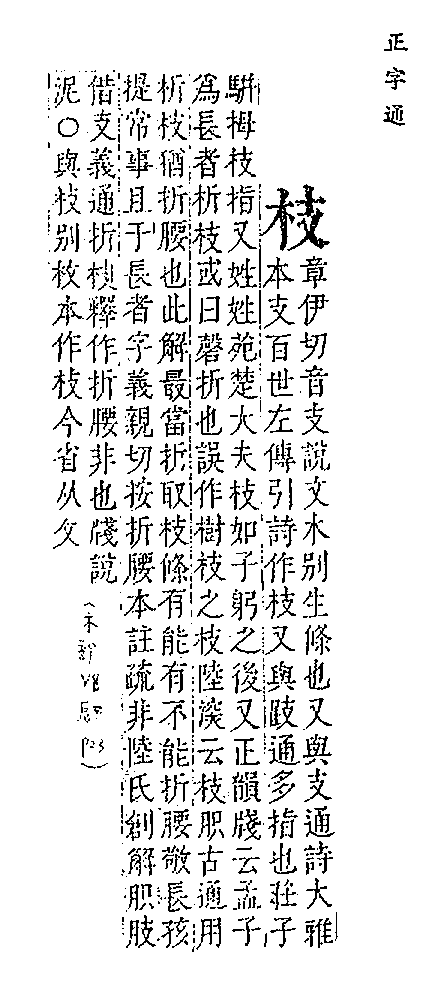 正字通
枝
章伊切音支說文木别生條也又與支通詩大雅
本支百世左傳引詩作枝又與跂通多指也莊子
駢拇枝指又姓姓苑楚大夫枝如子躬之後又正韻牋云孟子
爲長者折枝或曰磬折也誤作樹枝之枝陸湥云枝胑古通用
折枝猶折腰也此解最當折取枝條有能有不能折腰敬長孩
提常事且于長者字義親切按折腰本註疏非陸氏創解胑肢
借支義通折枝釋作折腰非也牋說
泥○與枚别枚本作枝今省从攵